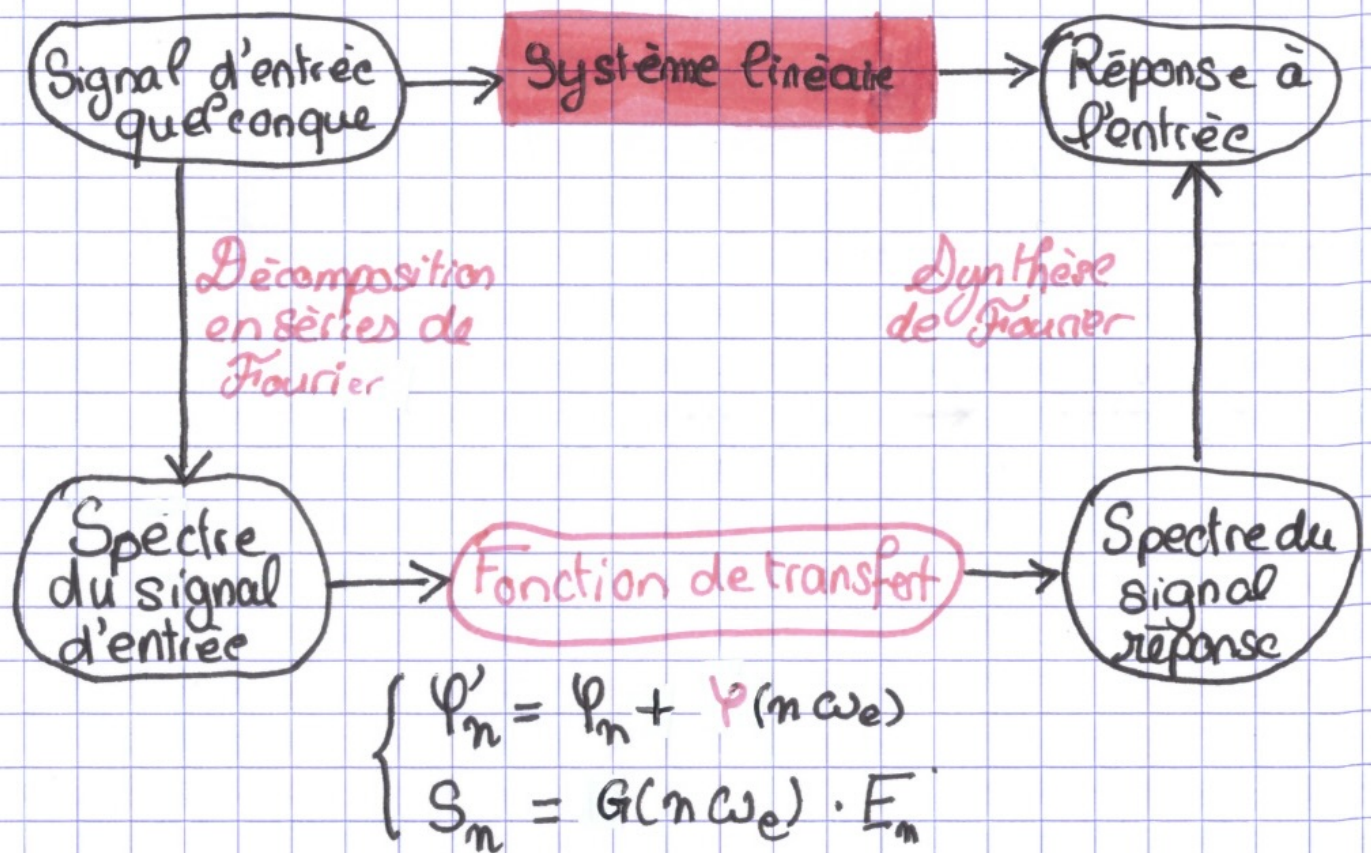 Signal d'entrée
quelconque
Système linéaire
Réponse à
l'entrée
Décomposition
en séries de
Fourier
Synthèse
de Fourier
Spectre
du signal
d'entrée
Fonction de transfert
Spectre du
signal
réponse
φ'ₙ = φₙ + φ(nωₑ)
Sₙ = G(nωₑ) · Eₙ